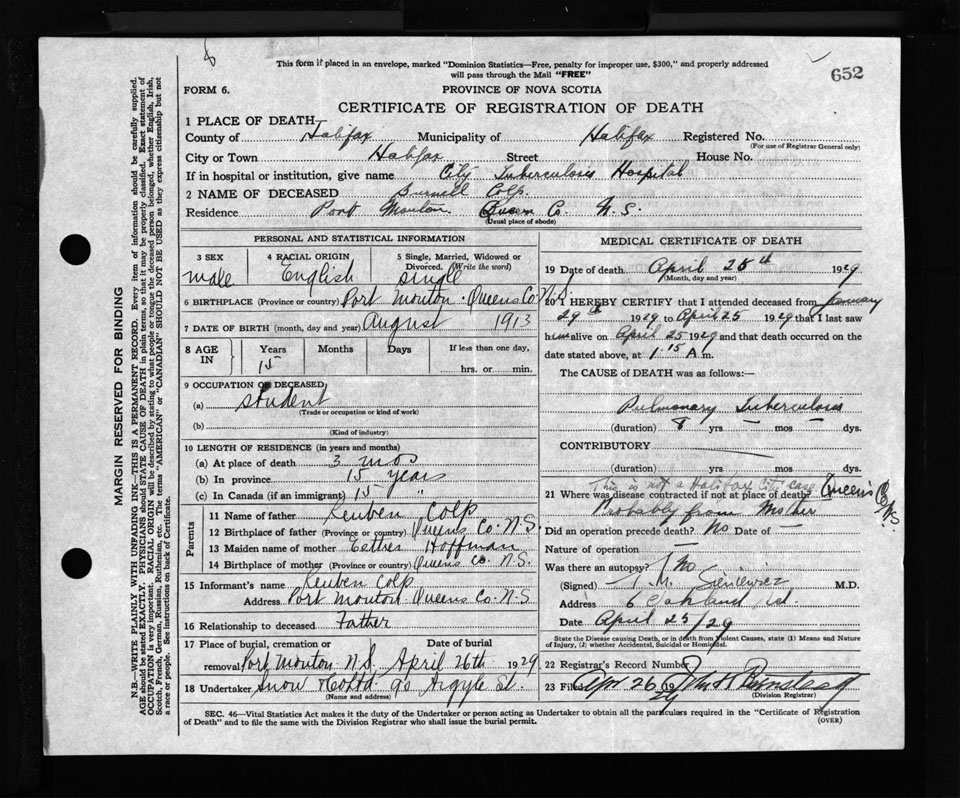 This form if placed in an envelope, marked "Dominion Statistics—Free, penalty for improper use, $300," and properly addressed
will pass through the Mail "FREE"
652
FORM 6.
PROVINCE OF NOVA SCOTIA
CERTIFICATE OF REGISTRATION OF DEATH
1 PLACE OF DEATH
County of Halifax Municipality of Halifax Registered No.
(For use of Registrar General only)
City or Town Halifax Street House No.
If in hospital or institution, give name City Tuberculosis Hospital
2 NAME OF DECEASED Burnell Colp.
Residence Port Mouton Queen Co. N.S.
(Usual place of abode)
PERSONAL AND STATISTICAL INFORMATION
3 SEX male
4 RACIAL ORIGIN English
5 Single, Married, Widowed or Divorced. (Write the word) single
6 BIRTHPLACE (Province or country) Port Mouton Queens Co N.S.
7 DATE OF BIRTH (month, day and year) August 1913
8 AGE IN Years Months Days If less than one day,
15 hrs. or min.
9 OCCUPATION OF DECEASED
(a) student
(Trade or occupation or kind of work)
(b)
(Kind of industry)
10 LENGTH OF RESIDENCE (in years and months)
(a) At place of death 3 mos
(b) In province 15 years
(c) In Canada (if an immigrant) 15 "
Parents
11 Name of father Reuben Colp
12 Birthplace of father (Province or country) Queens Co. N.S.
13 Maiden name of mother Esther Hoffman
14 Birthplace of mother (Province or country) Queens Co. N.S.
15 Informant's name Reuben Colp
Address Port Mouton Queens Co. N.S.
16 Relationship to deceased Father
17 Place of burial, cremation or Date of burial
removal Port Mouton N.S. April 26th 1929
18 Undertaker Snow & Co Ltd 90 Argyle St.
(Name and address)
MEDICAL CERTIFICATE OF DEATH
19 Date of death April 25th 1929
(Month, day and year)
20 I HEREBY CERTIFY that I attended deceased from January
29th 1929 to April 25 1929 that I last saw
him alive on April 25 1929 and that death occurred on the
date stated above, at 1.15 A m.
The CAUSE of DEATH was as follows:—
Pulmonary Tuberculosis
(duration) 8 yrs — mos — dys.
CONTRIBUTORY
(duration) yrs mos dys.
This is not a Halifax City case.
21 Where was disease contracted if not at place of death? Queen's Co N.S.
Probably from Mother
Did an operation precede death? No Date of —
Nature of operation —
Was there an autopsy? No
(Signed) M. Sieniewicz M.D.
Address 6 Oakland Rd.
Date April 25/29
State the Disease causing Death, or in death from Violent Causes, state (1) Means and Nature
of Injury, (2) whether Accidental, Suicidal or Homicidal.
22 Registrar's Record Number
23 Filed Apr 26 1929
(Division Registrar)
SEC. 46—Vital Statistics Act makes it the duty of the Undertaker or person acting as Undertaker to obtain all the particulars required in the "Certificate of Registration
of Death" and to file the same with the Division Registrar who shall issue the burial permit.
(OVER)
MARGIN RESERVED FOR BINDING
N.B.—WRITE PLAINLY WITH UNFADING INK—THIS IS A PERMANENT RECORD. Every item of information should be carefully supplied.
AGE should be stated EXACTLY. PHYSICIANS should STATE CAUSE OF DEATH in plain terms, so that it may be properly classified. Exact statement of
OCCUPATION is very important. RACIAL ORIGIN will be described by stating to what people or tongue the deceased person belonged, whether English, Irish,
Scotch, French, German, Russian, Ruthenian, etc. The terms "AMERICAN" or "CANADIAN" SHOULD NOT BE USED as they express citizenship but not
a race or people. See instructions on back of Certificate.